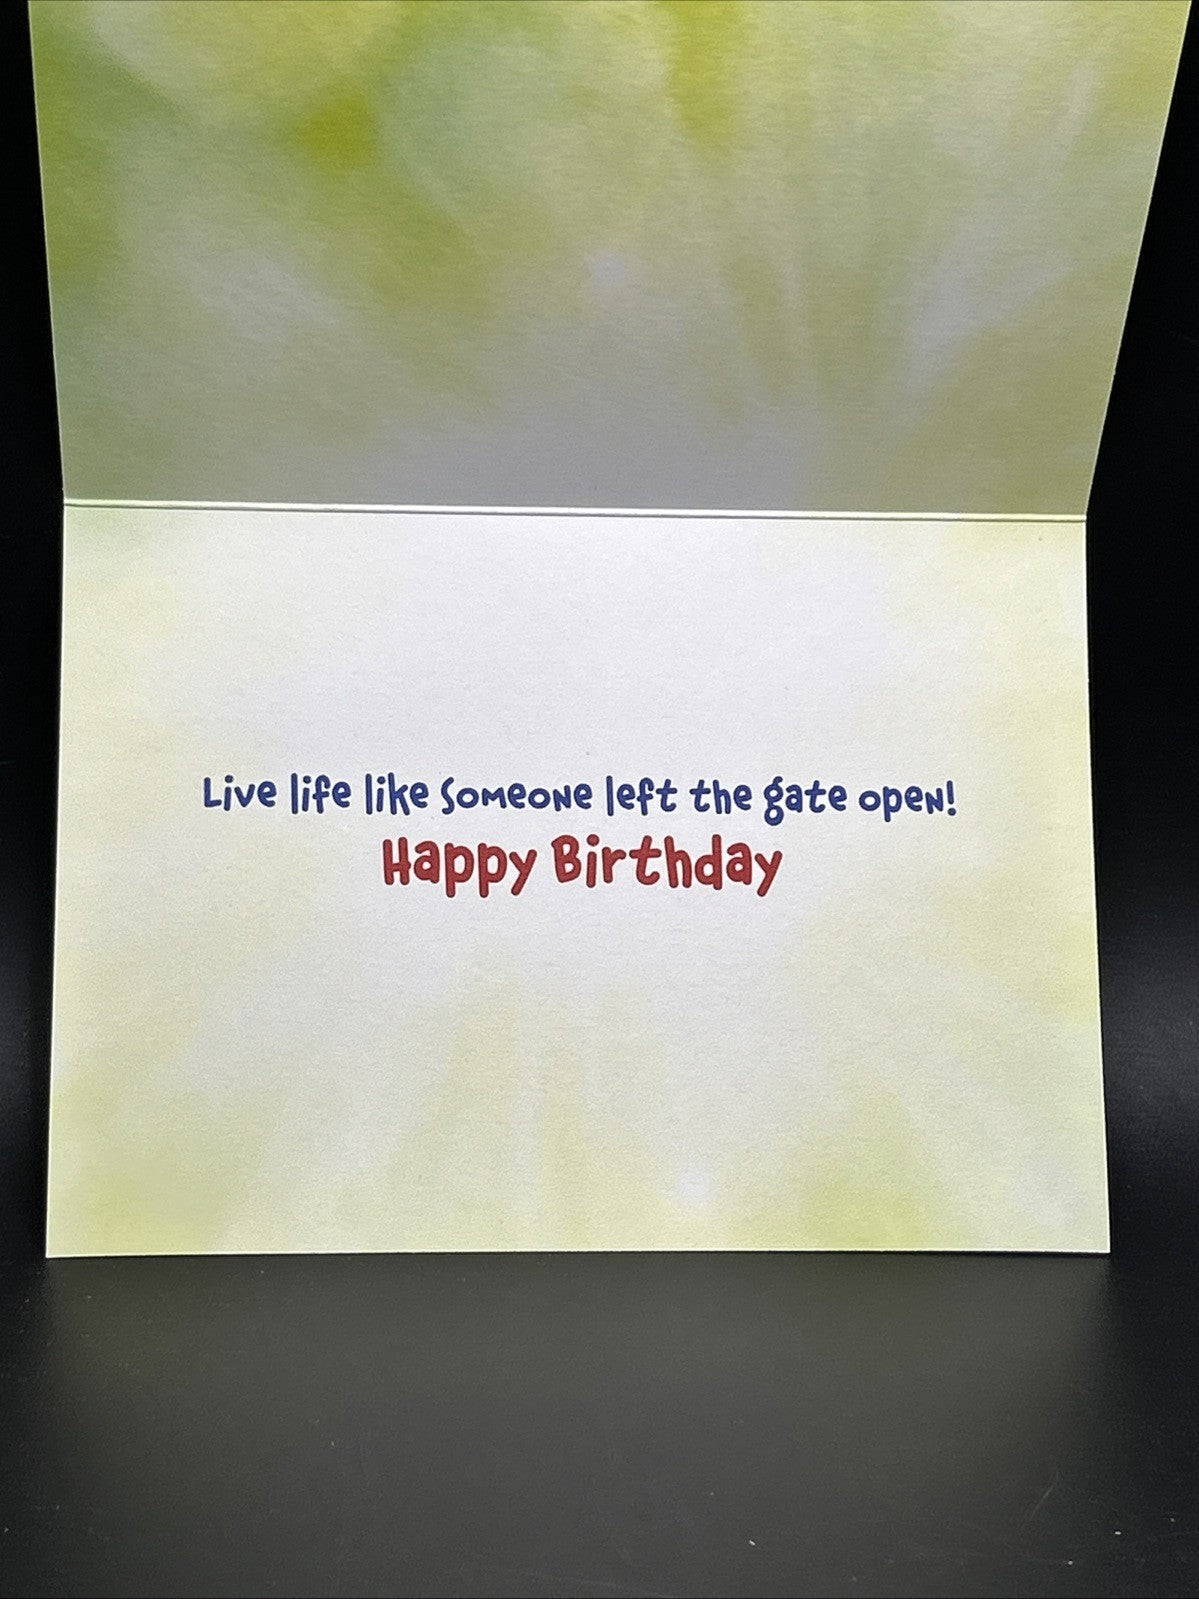 Live life like someone left the gate open!
Happy Birthday